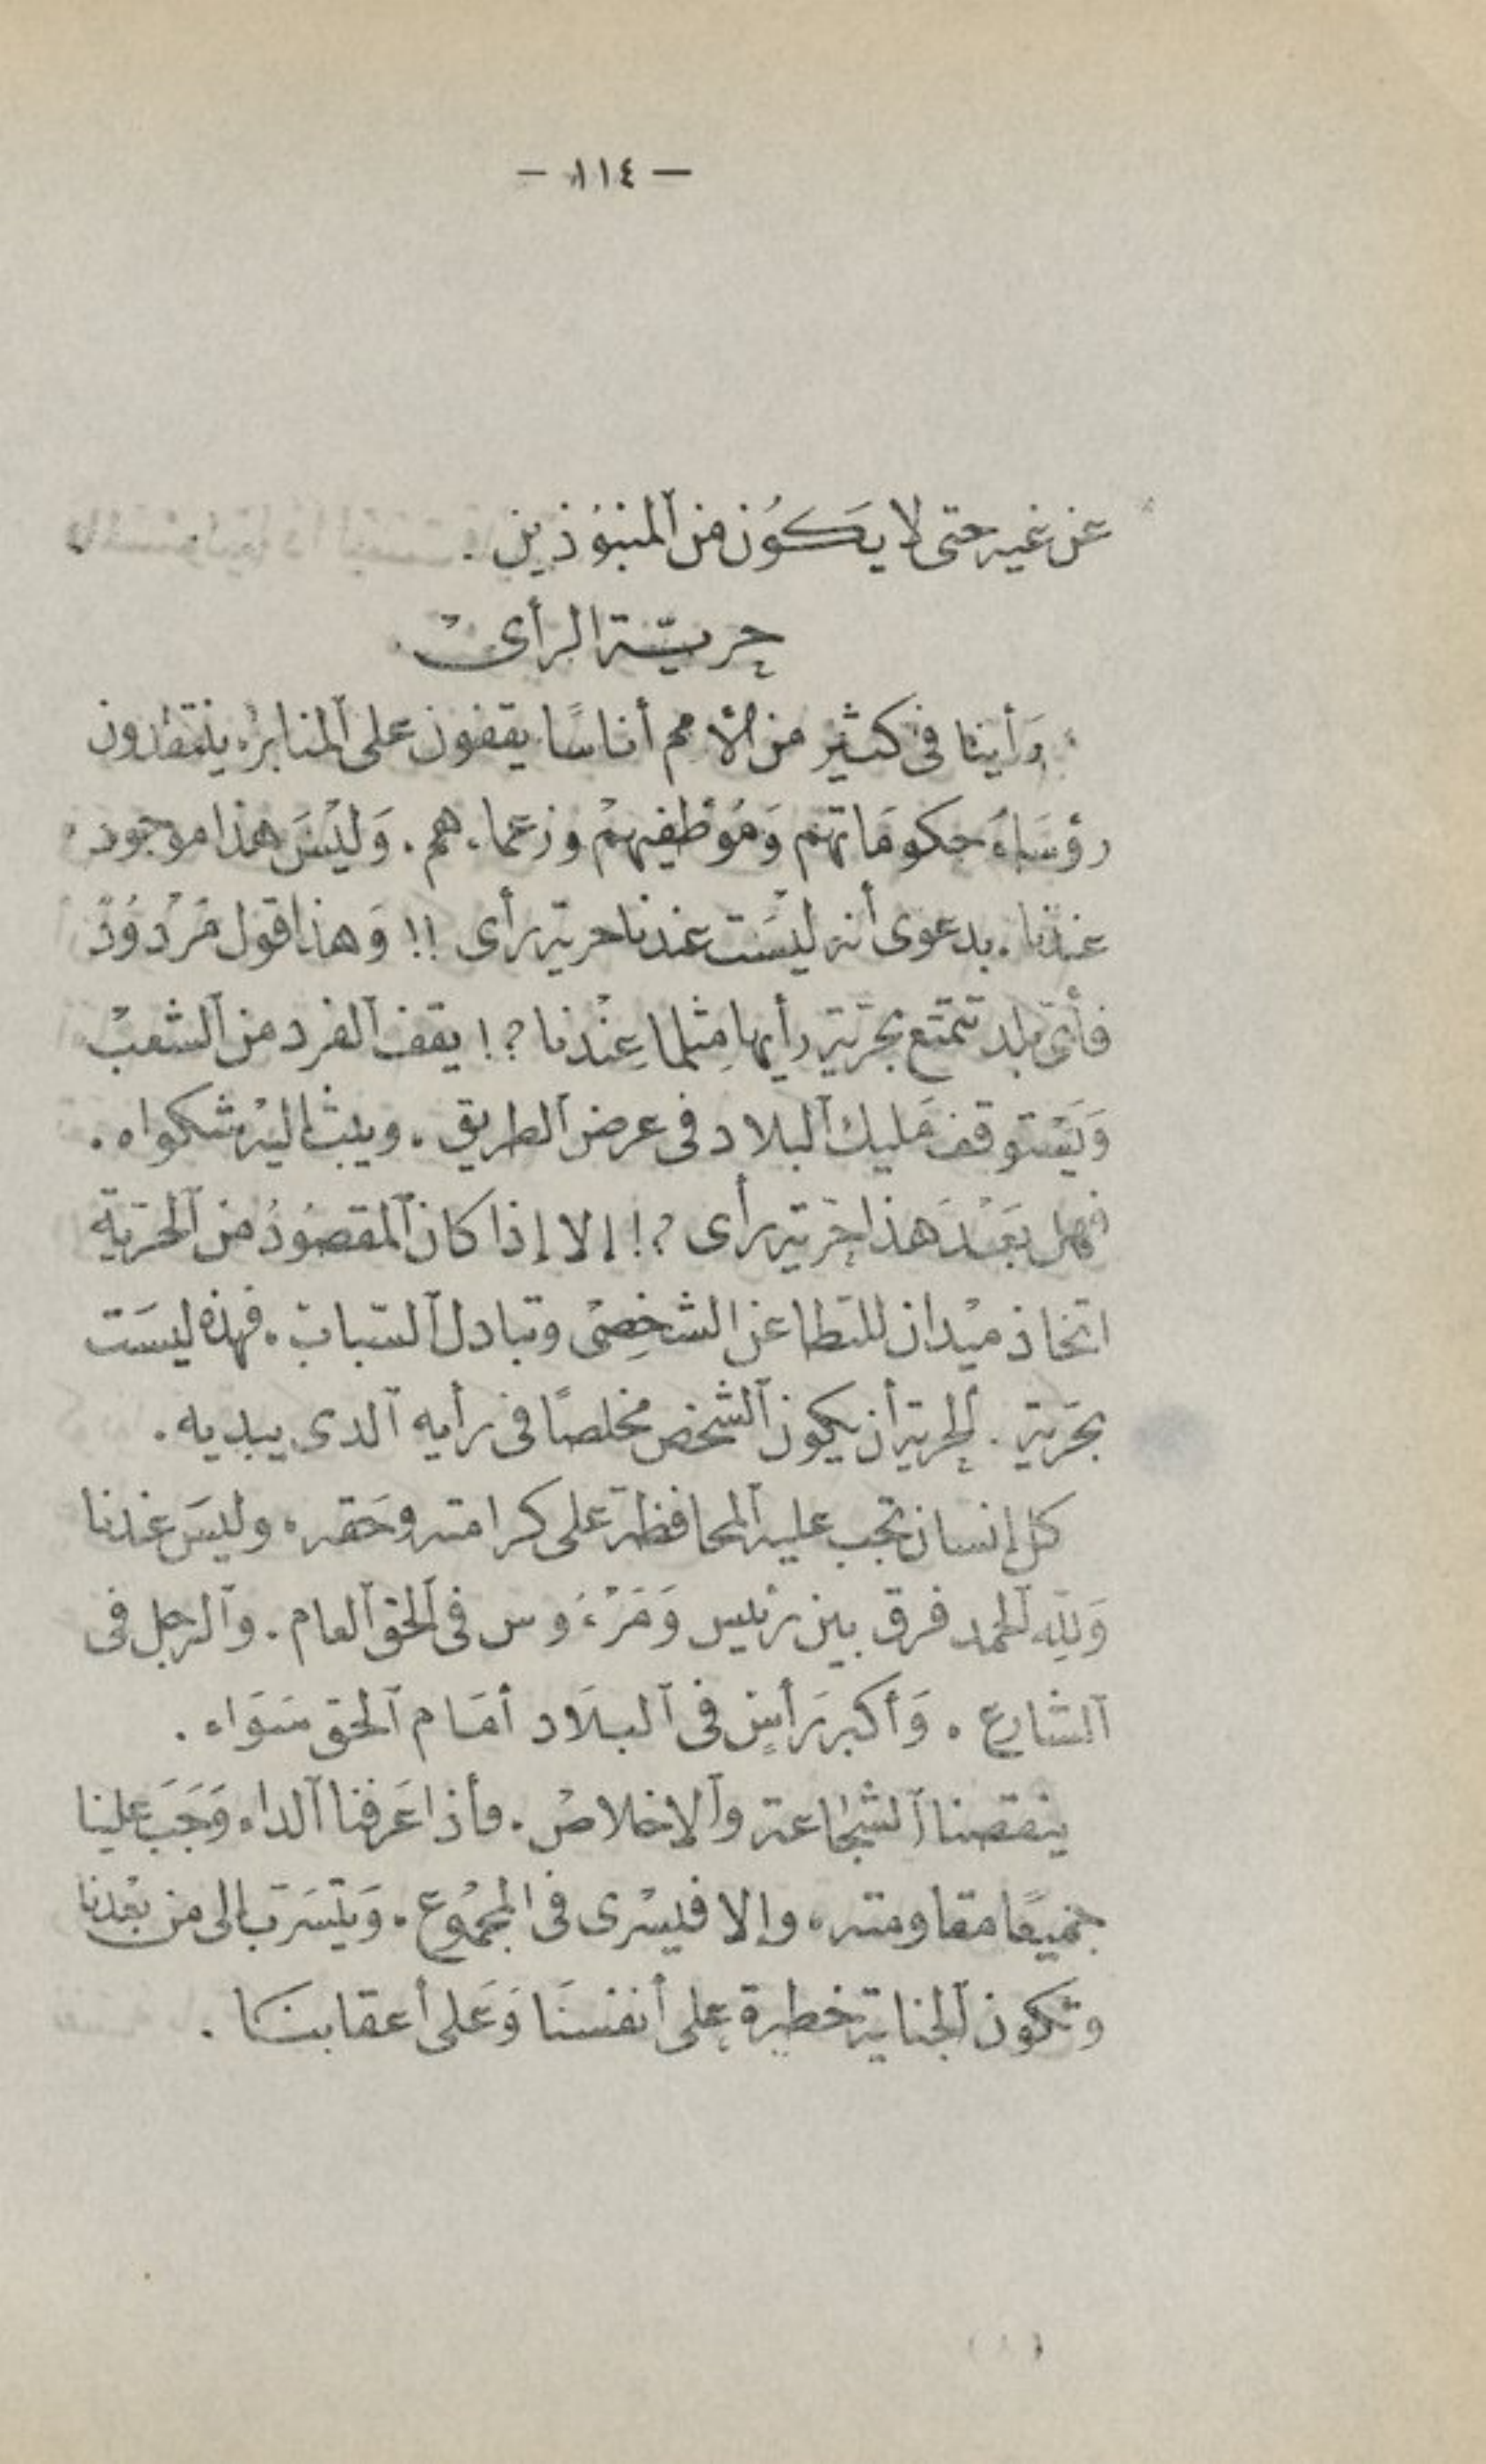 — ١١٤ —
عن غيه حتى لا يكون من المنبوذين .
حرية الرأى
رأينا فى كثير من الأمم أناسًا يقفون على المنابر ، ينتقدون
رؤساء حكوماتهم وموظفيهم وزعماءهم . وليس هذا موجود
عندنا . بدعوى أنه ليست عندنا حرية رأى !! وهذا قول مردود
فأى بلد تتمتع بحرية رأيها مثلما عندنا ؟! يقف الفرد من الشعب
ويستوقف مليك البلاد فى عرض الطريق . ويبث اليه شكواه .
فهل بعد هذا حرية رأى ؟! إلا إذا كان المقصود من الحرية
اتخاذ ميدان للتطاعن الشخصى وتبادل السباب . فهذه ليست
بحرية . الحرية أن يكون الشخص مخلصًا فى رأيه الذى يبديه .
كل إنسان تجب عليه المحافظة على كرامته وحقه . وليس عندنا
ولله الحمد فرق بين رئيس ومرءوس فى الحق العام . والرجل فى
الشارع . وأكبر رأس فى البلاد أمام الحق سواء .
ينقصنا الشجاعة والاخلاص . فأذا عرفنا الداء وجب علينا
جميعًا مقاومته ، وإلا فيسرى فى المجموع . ويتسرب إلى من بعدنا
وتكون الجناية خطيرة على أنفسنا وعلى أعقابنا .